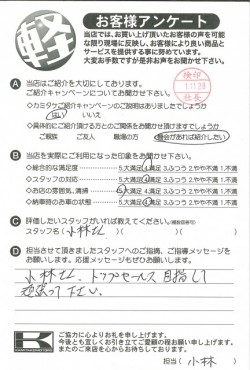 軽
お客様アンケート
当店では、お買い上げ頂いたお客様の声を可能
な限り現場に反映し、お客様により良い商品と
サービスを提供する事に努めています。
大変お手数ですが是非お声をお聞かせ下さい。
検印
1.11.26
社長
A 当店はご紹介を大切にしております。
ご紹介キャンペーンについてお聞かせ下さい。
◇カミタケご紹介キャンペーンのご説明はありましたでしょうか
はい いいえ
◇具体的にご紹介頂ける方とのご関係をお聞かせ頂けますでしょうか
ご親族 ご友人 職場の方 機会があれば紹介したい
B 当店を実際にご利用になった印象をお聞かせ下さい。
◇総合的な満足度 5.大満足 4.満足 3.ふつう 2.やや不満 1.不満
◇スタッフの対応 5.大満足 4.満足 3.ふつう 2.やや不満 1.不満
◇お店の雰囲気、清掃 5.大満足 4.満足 3.ふつう 2.やや不満 1.不満
◇納車時のお車の状態 5.大満足 4.満足 3.ふつう 2.やや不満 1.不満
C 評価したいスタッフがいれば教えてください。(複数回答可)
スタッフ名(小林さん)
D 担当させて頂きましたスタッフへのご指摘、ご指導メッセージを
お願いします。応援メッセージもぜひお願いします。
小林さん、トップセールス目指して
頑張って下さい。
ご協力に心よりお礼を申し上げます。
今後とも宜しくお引き立てご愛顧の程お願い申し上げます。
またのご来店を心からお待ちしております。
担当(小林)